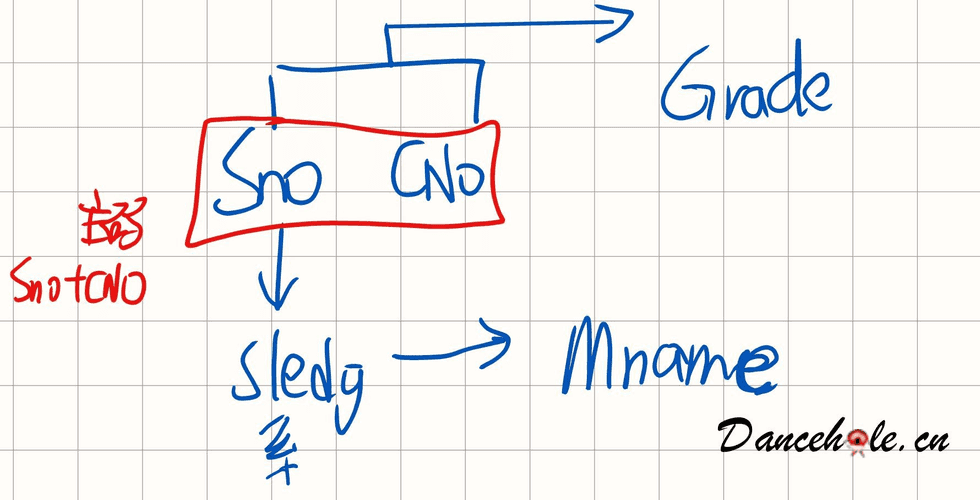 Grade
Sno CNO
主码
Sno+CNO
Sledg
Mname
Dancehole.cn